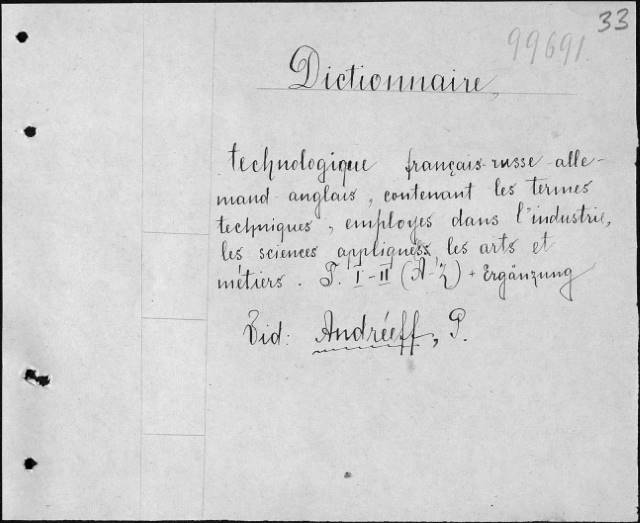 33
99691.
Dictionnaire,
technologique français-russe-alle-
mand-anglais, contenant les termes
techniques, employes dans l'industrie,
les sciences appliqnés, les arts et
métiers. T. I-II (A-Z) + Ergänzung
Vid: Andréeff, P.